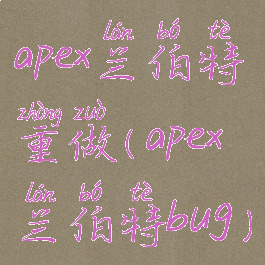 lán bó tè
apex兰伯特
zhòng zuò
重做(apex
lán bó tè
兰伯特bug)